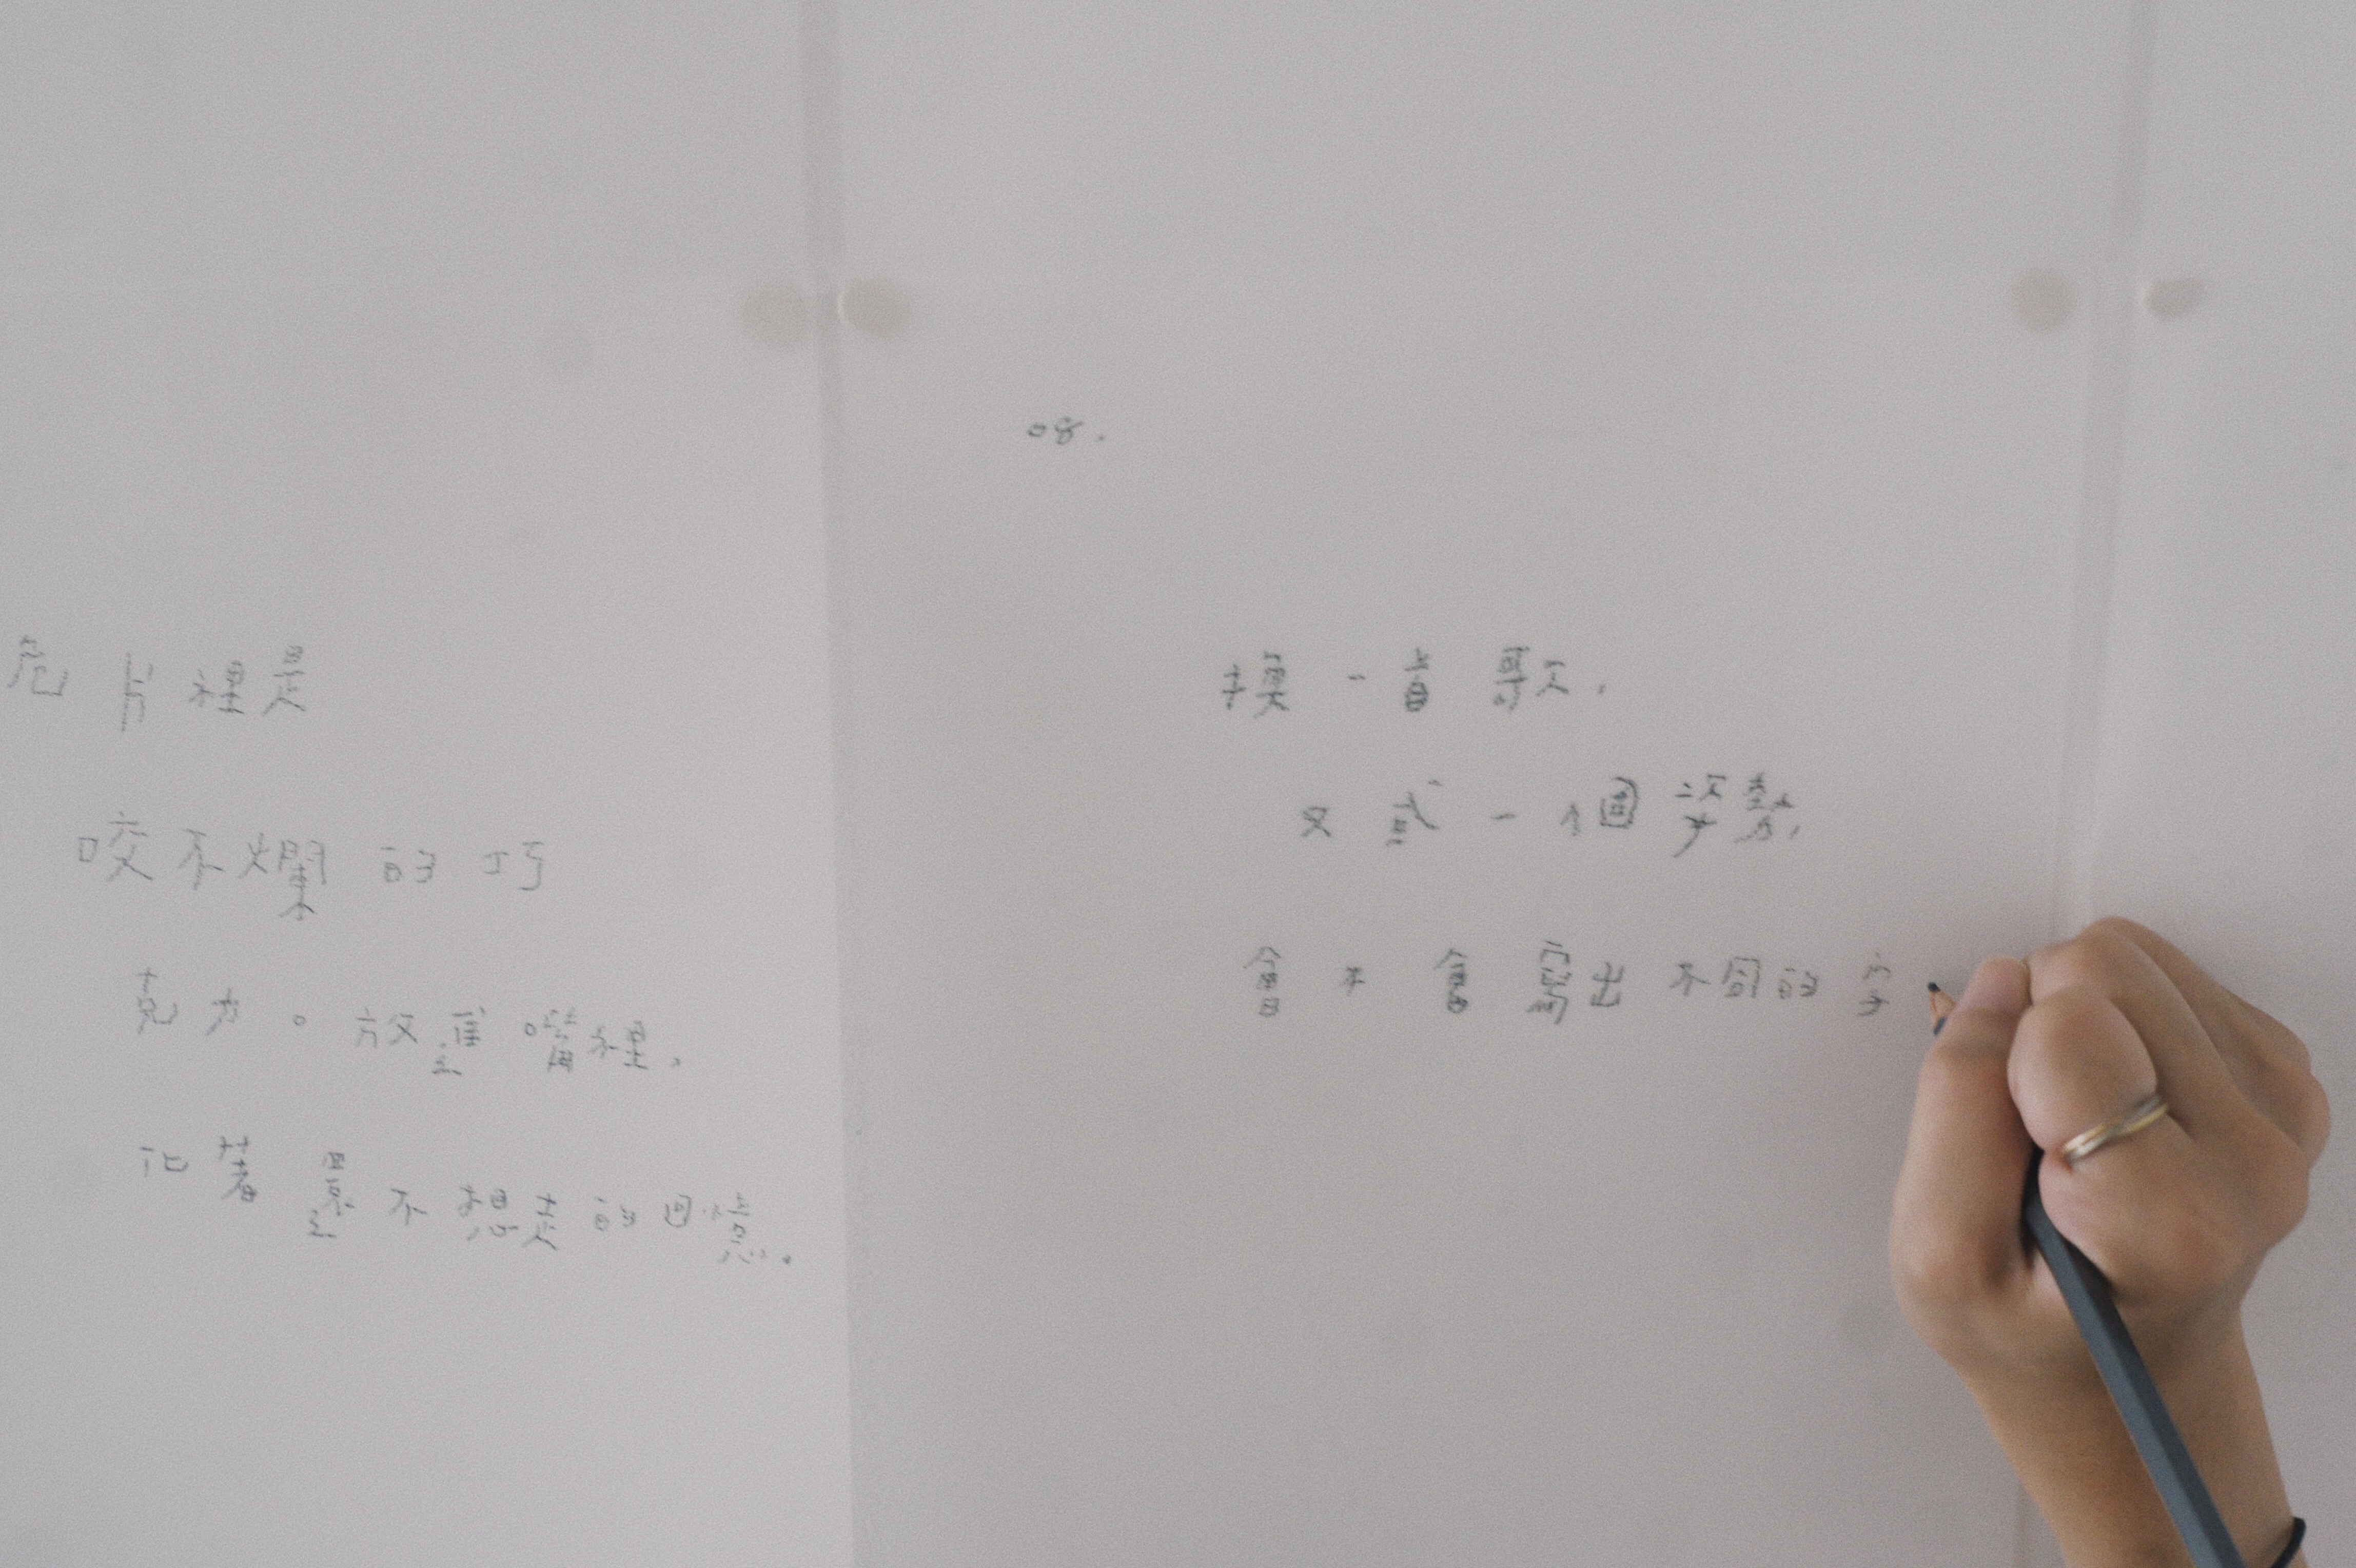 脆片裡是
咬不爛的巧
克力。放進嘴裡,
化著還不想走的回憶。
08.
換一首歌,
又或一個姿勢,
會不會寫出不同的字